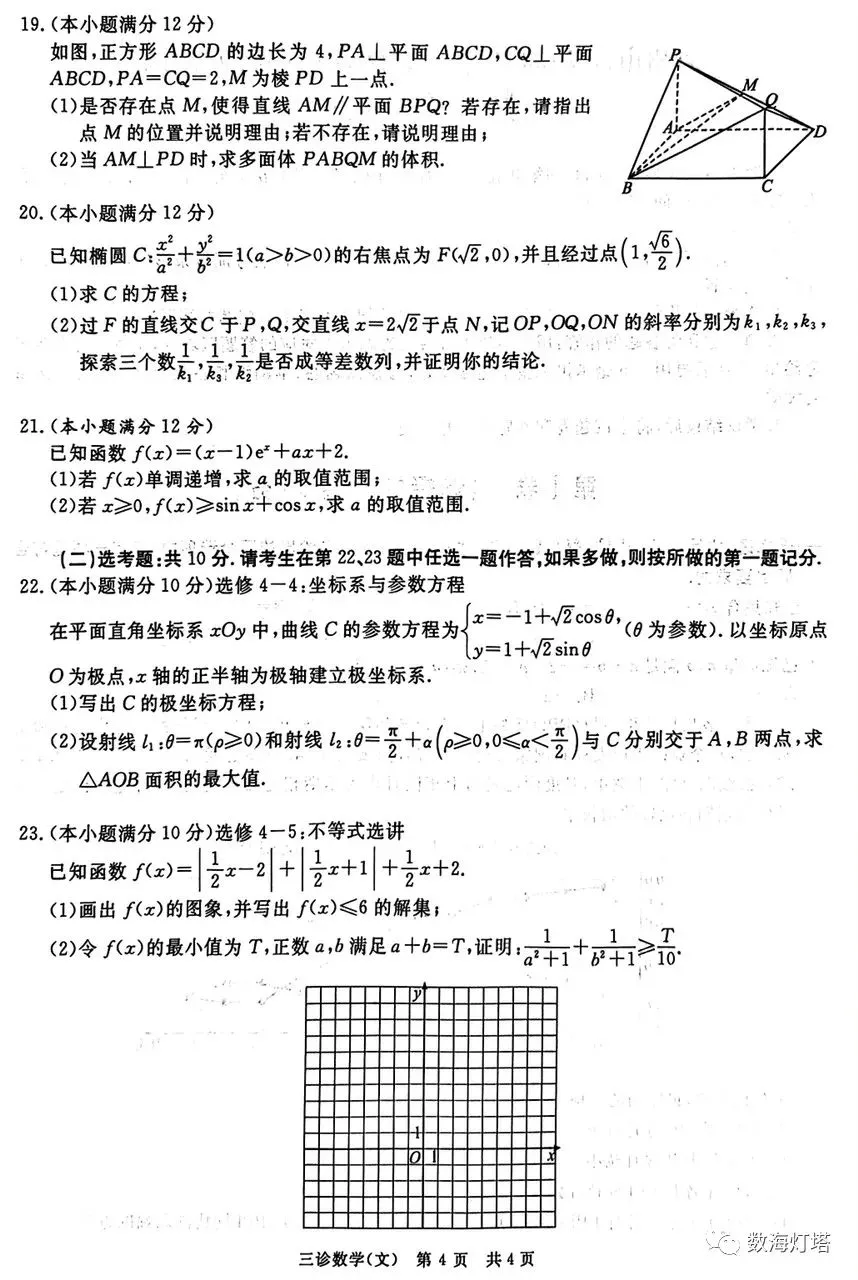 19.(本小题满分12分)
如图,正方形ABCD的边长为4,PA⊥平面ABCD,CQ⊥平面
ABCD,PA=CQ=2,M为棱PD上一点.
(1)是否存在点M,使得直线AM∥平面BPQ?若存在,请指出
点M的位置并说明理由;若不存在,请说明理由;
(2)当AM⊥PD时,求多面体PABQM的体积.
P
M
Q
A
D
B
C
20.(本小题满分12分)
已知椭圆C:x²/a²+y²/b²=1(a>b>0)的右焦点为F(√2,0),并且经过点(1,√6/2).
(1)求C的方程;
(2)过F的直线交C于P,Q,交直线x=2√2于点N,记OP,OQ,ON的斜率分别为k₁,k₂,k₃,
探索三个数1/k₁,1/k₃,1/k₂是否成等差数列,并证明你的结论.
21.(本小题满分12分)
已知函数f(x)=(x-1)eˣ+ax+2.
(1)若f(x)单调递增,求a的取值范围;
(2)若x≥0,f(x)≥sin x+cos x,求a的取值范围.
(二)选考题:共10分.请考生在第22、23题中任选一题作答,如果多做,则按所做的第一题记分.
22.(本小题满分10分)选修4-4:坐标系与参数方程
在平面直角坐标系xOy中,曲线C的参数方程为{x=-1+√2cosθ, y=1+√2sinθ (θ为参数).以坐标原点
O为极点,x轴的正半轴为极轴建立极坐标系.
(1)写出C的极坐标方程;
(2)设射线l₁:θ=π(ρ≥0)和射线l₂:θ=π/2+α(ρ≥0,0≤α<π/2)与C分别交于A,B两点,求
△AOB面积的最大值.
23.(本小题满分10分)选修4-5:不等式选讲
已知函数f(x)=|1/2x-2|+|1/2x+1|+1/2x+2.
(1)画出f(x)的图象,并写出f(x)≤6的解集;
(2)令f(x)的最小值为T,正数a,b满足a+b=T,证明:1/(a²+1)+1/(b²+1)≥T/10.
y
1
O 1 x
三诊数学(文) 第4页 共4页
数海灯塔